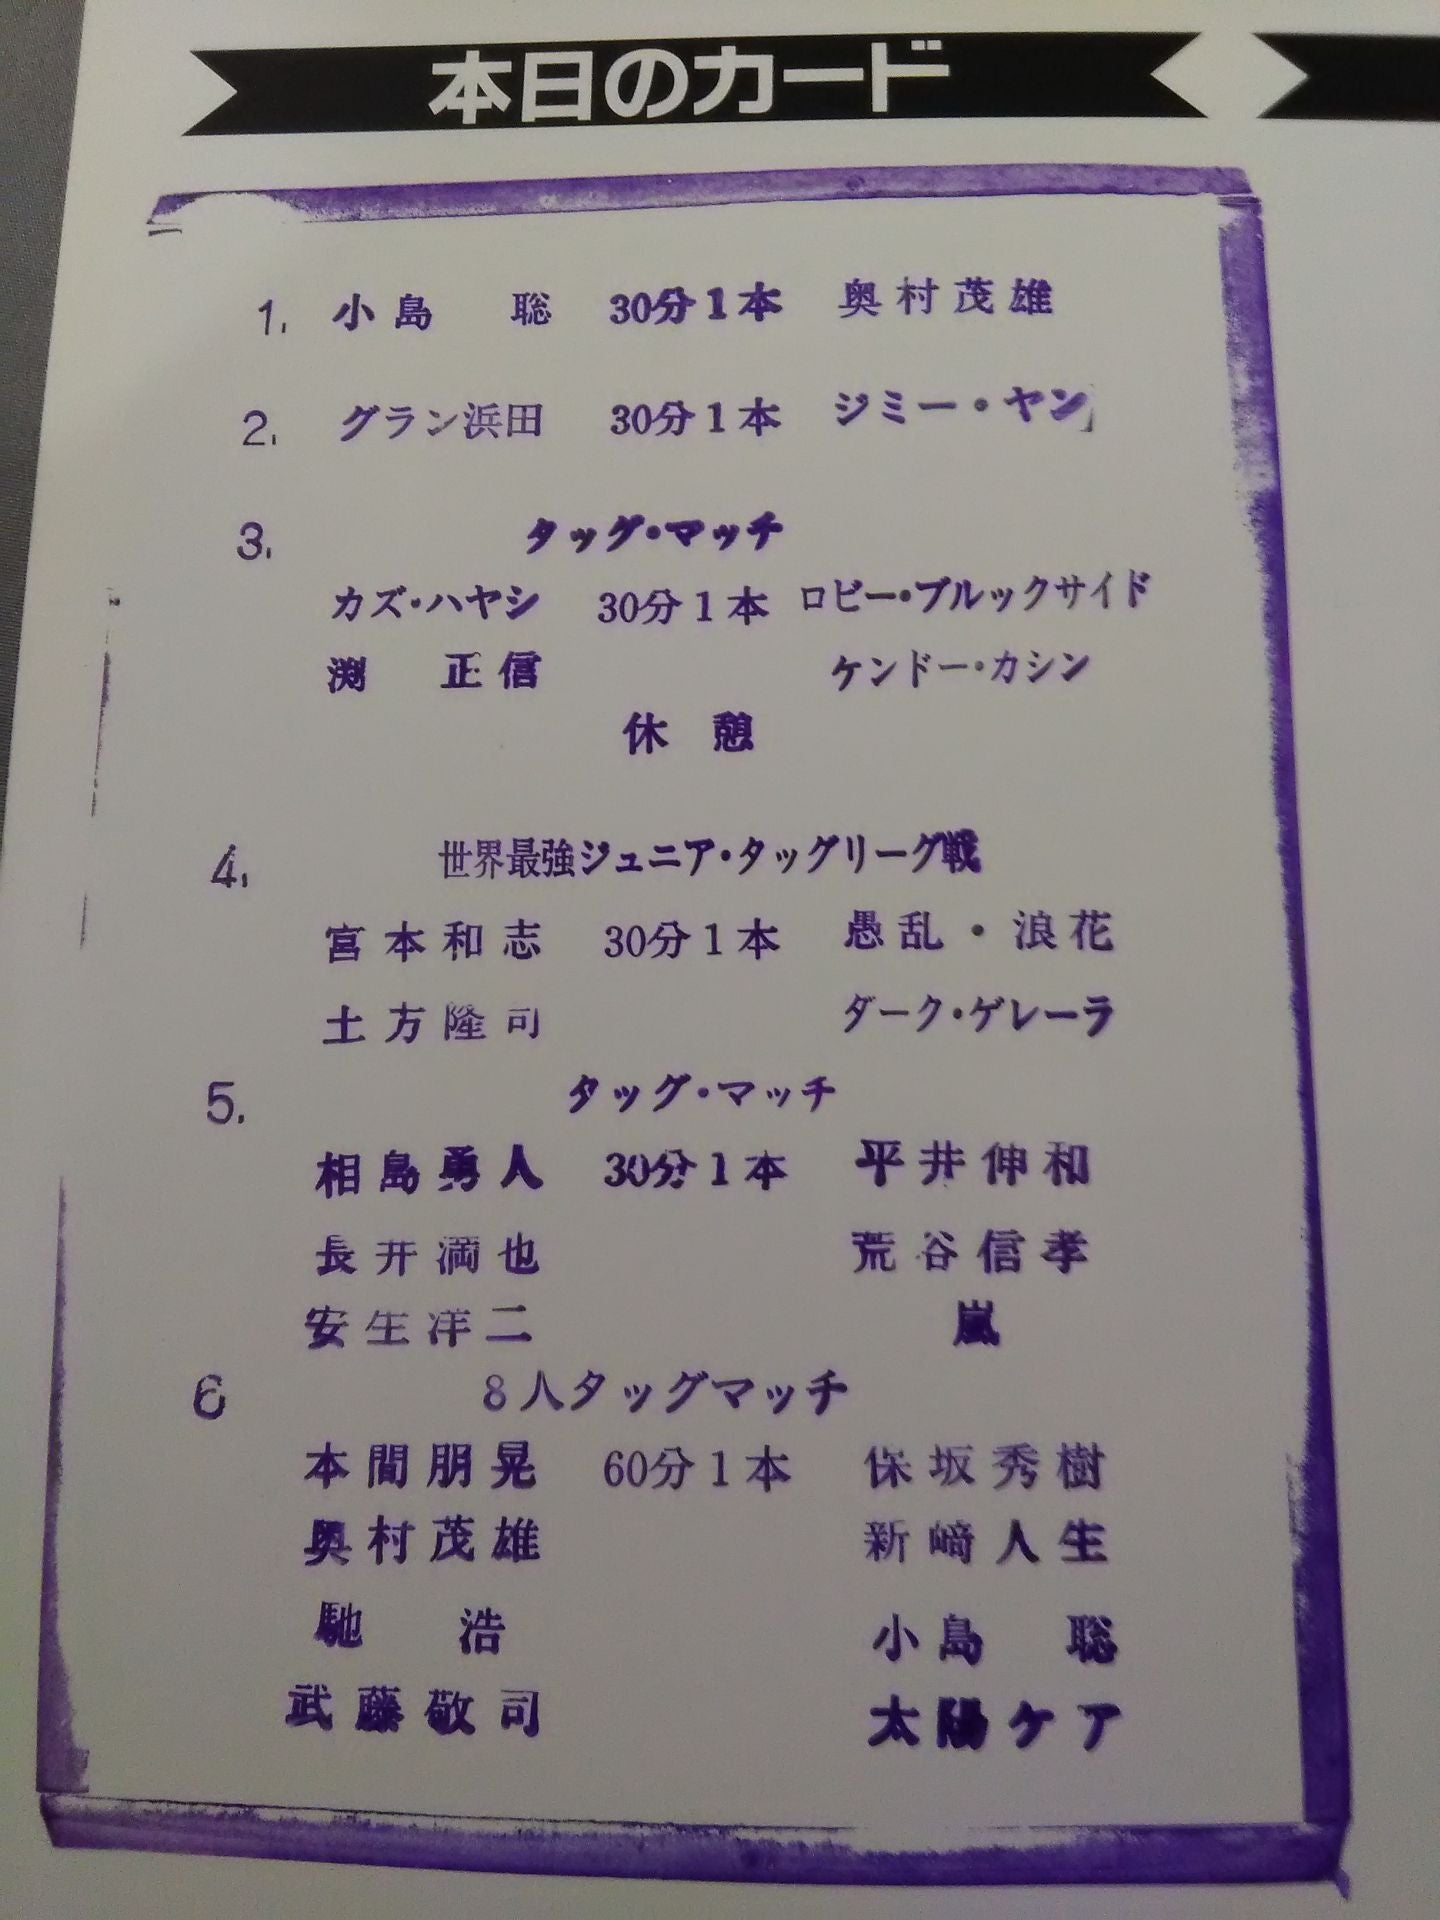 本日のカード
1. 小島 聡 30分1本 奥村茂雄
2. グラン浜田 30分1本 ジミー・ヤン
3. タッグ・マッチ
カズ・ハヤシ 30分1本 ロビー・ブルックサイド
渕 正信 ケンドー・カシン
休憩
4. 世界最強ジュニア・タッグリーグ戦
宮本和志 30分1本 愚乱・浪花
土方隆司 ダーク・ゲレーラ
5. タッグ・マッチ
相島勇人 30分1本 平井伸和
長井満也 荒谷信孝
安生洋二 嵐
6 8人タッグマッチ
本間朋晃 60分1本 保坂秀樹
奥村茂雄 新﨑人生
馳 浩 小島 聡
武藤敬司 太陽ケア